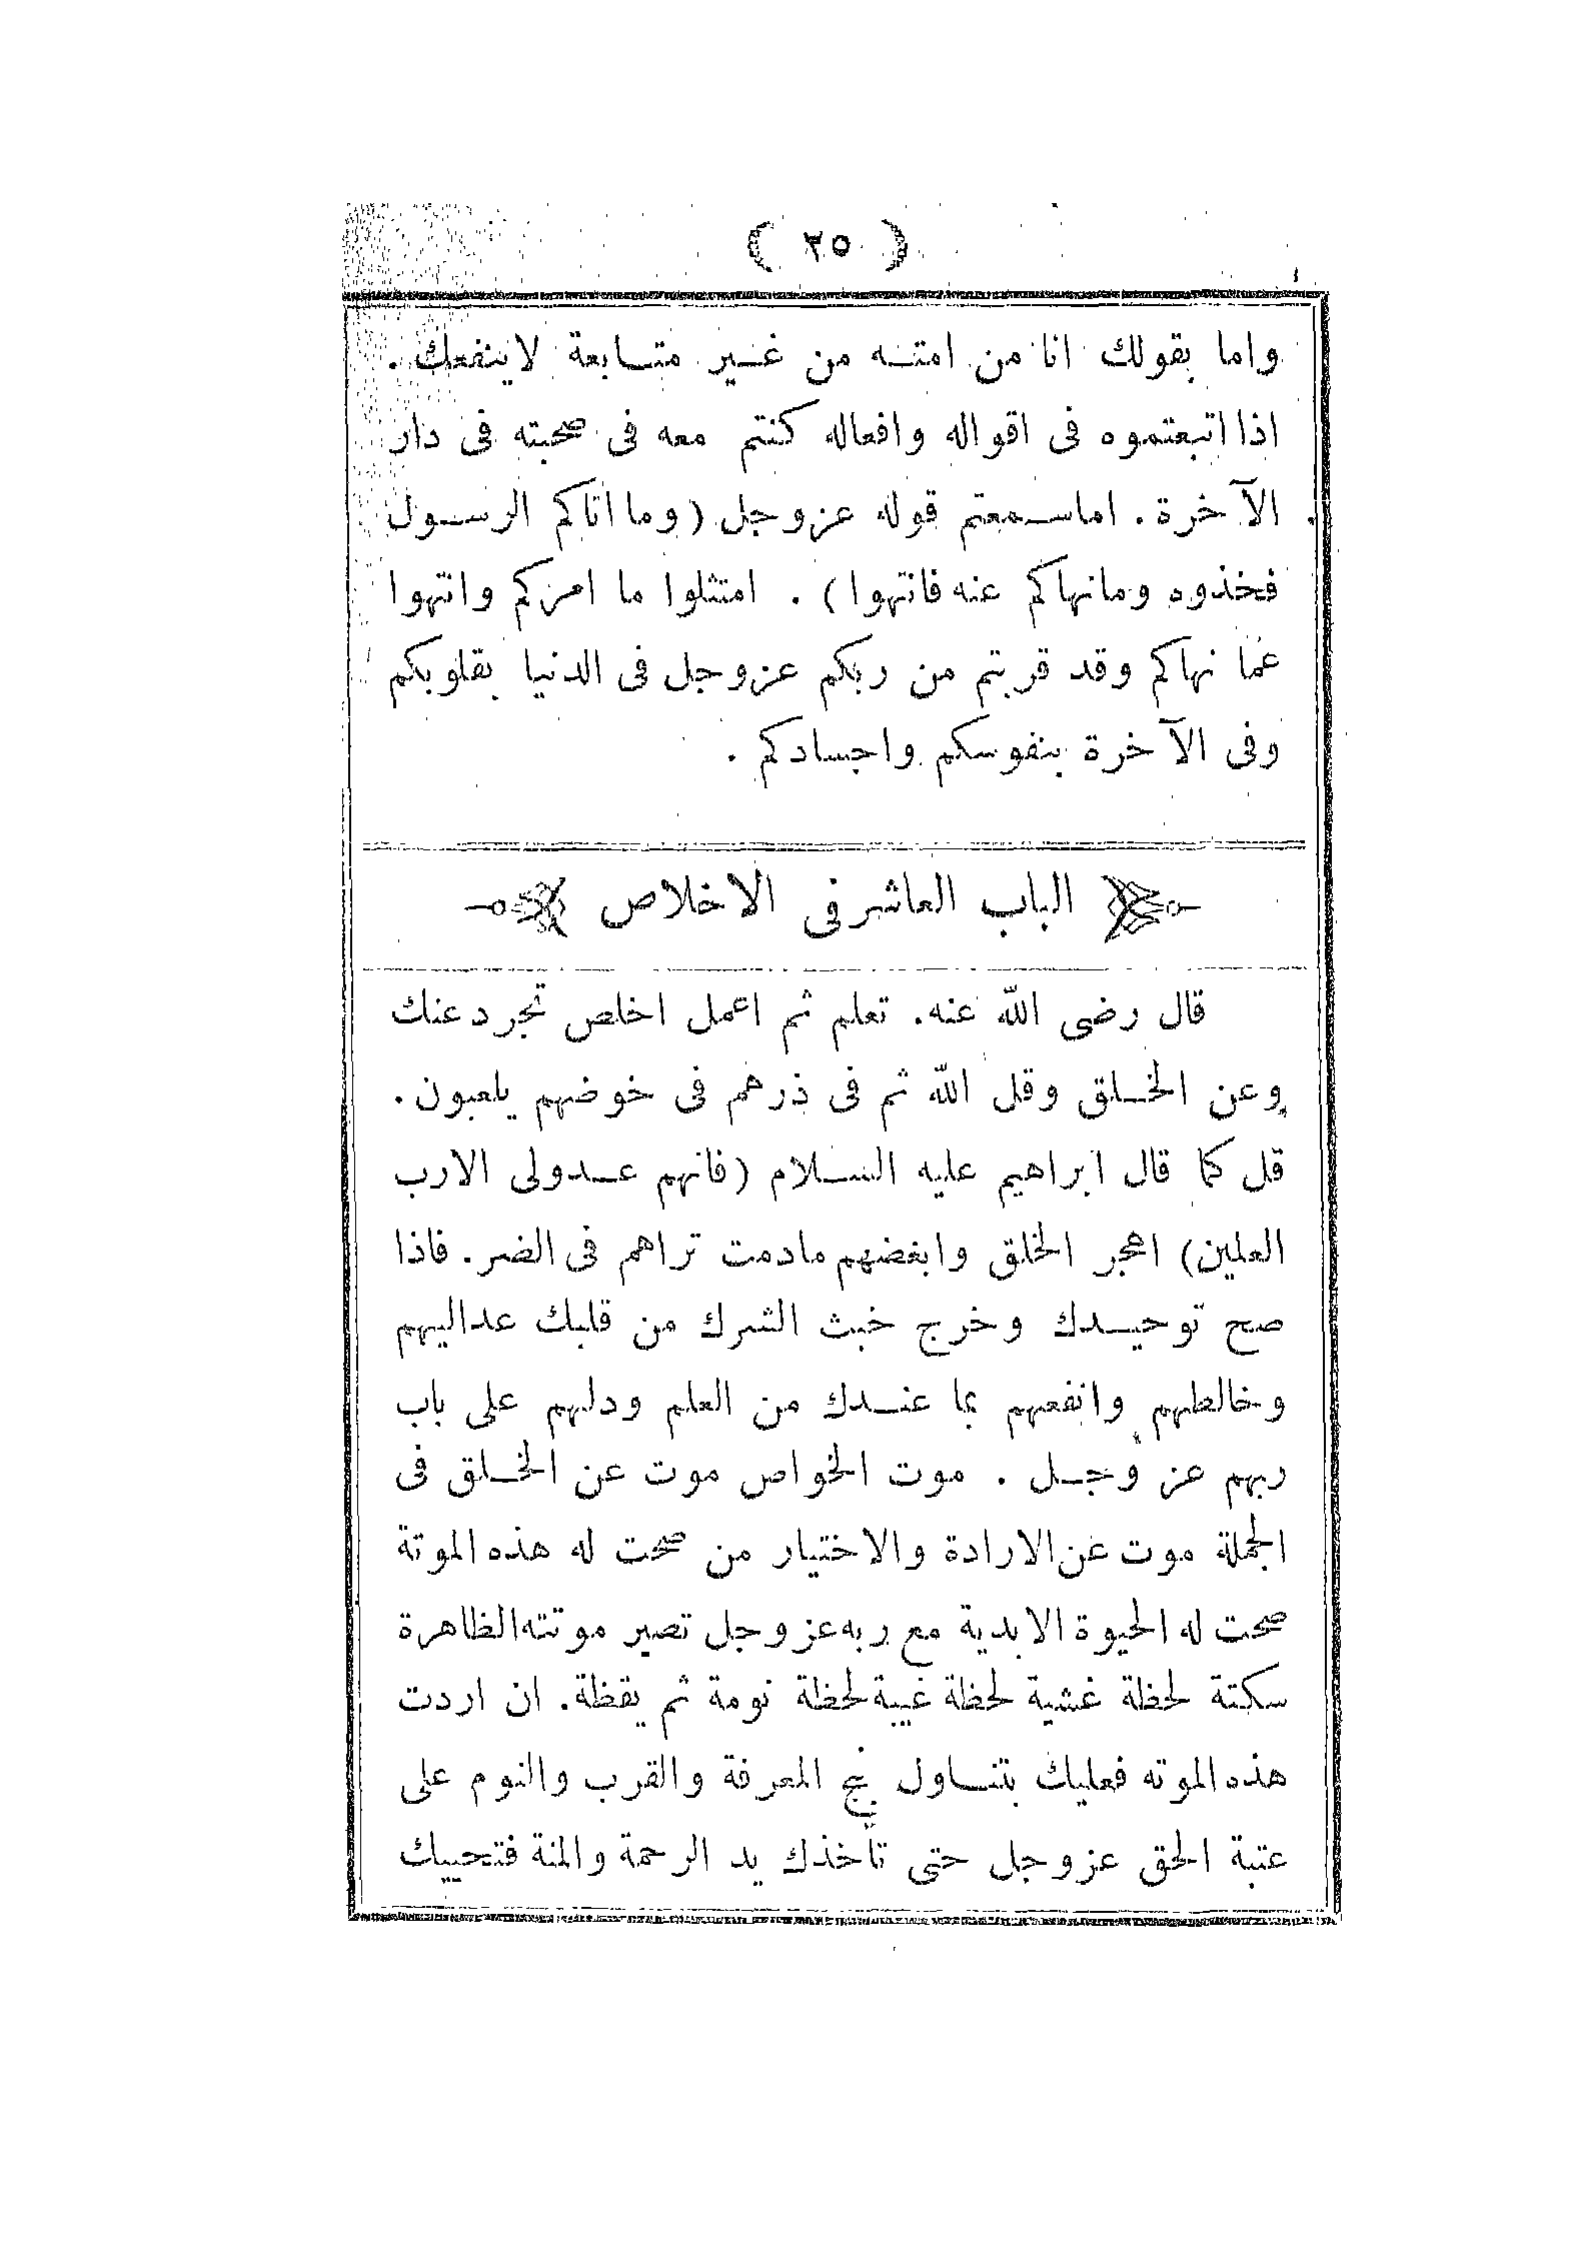 ( ٢٥ )
واما بقولك انا من امته من غير متابعة لاينفعك .
اذا اتبعتموه فى اقواله وافعاله كنتم معه فى صحبته فى دار
الآخرة . اماسمعتم قوله عزوجل ( وما اتاكم الرسول
فخذوه ومانهاكم عنه فانتهوا ) . امتثلوا ما امركم وانتهوا
عما نهاكم وقد قربتم من ربكم عزوجل فى الدنيا بقلوبكم
وفى الآخرة بنفوسكم واجسادكم .
الباب العاشر فى الاخلاص
قال رضى الله عنه . تعلم ثم اعمل اخلص تجرد عنك
وعن الخلق وقل الله ثم فى ذرهم فى خوضهم يلعبون .
قل كما قال ابراهيم عليه السلام ( فانهم عدولى الارب
العلمين ) اهجر الخلق وابغضهم مادمت تراهم فى الضر . فاذا
صح توحيدك وخرج خبث الشرك من قلبك عد اليهم
وخالطهم وانفعهم بما عندك من العلم ودلهم على باب
ربهم عز وجل . موت الخواص موت عن الخلق فى
الجملة موت عن الارادة والاختيار من صحت له هذه الموتة
صحت له الحيوة الابدية مع ربه عز وجل تصير موتته الظاهرة
سكتة لحظة غشية لحظة غيبة لحظة نومة ثم يقظة . ان اردت
هذه الموته فعليك بتناول بنج المعرفة والقرب والنوم على
عتبة الحق عزوجل حتى تأخذك يد الرحمة والمنة فتحييك